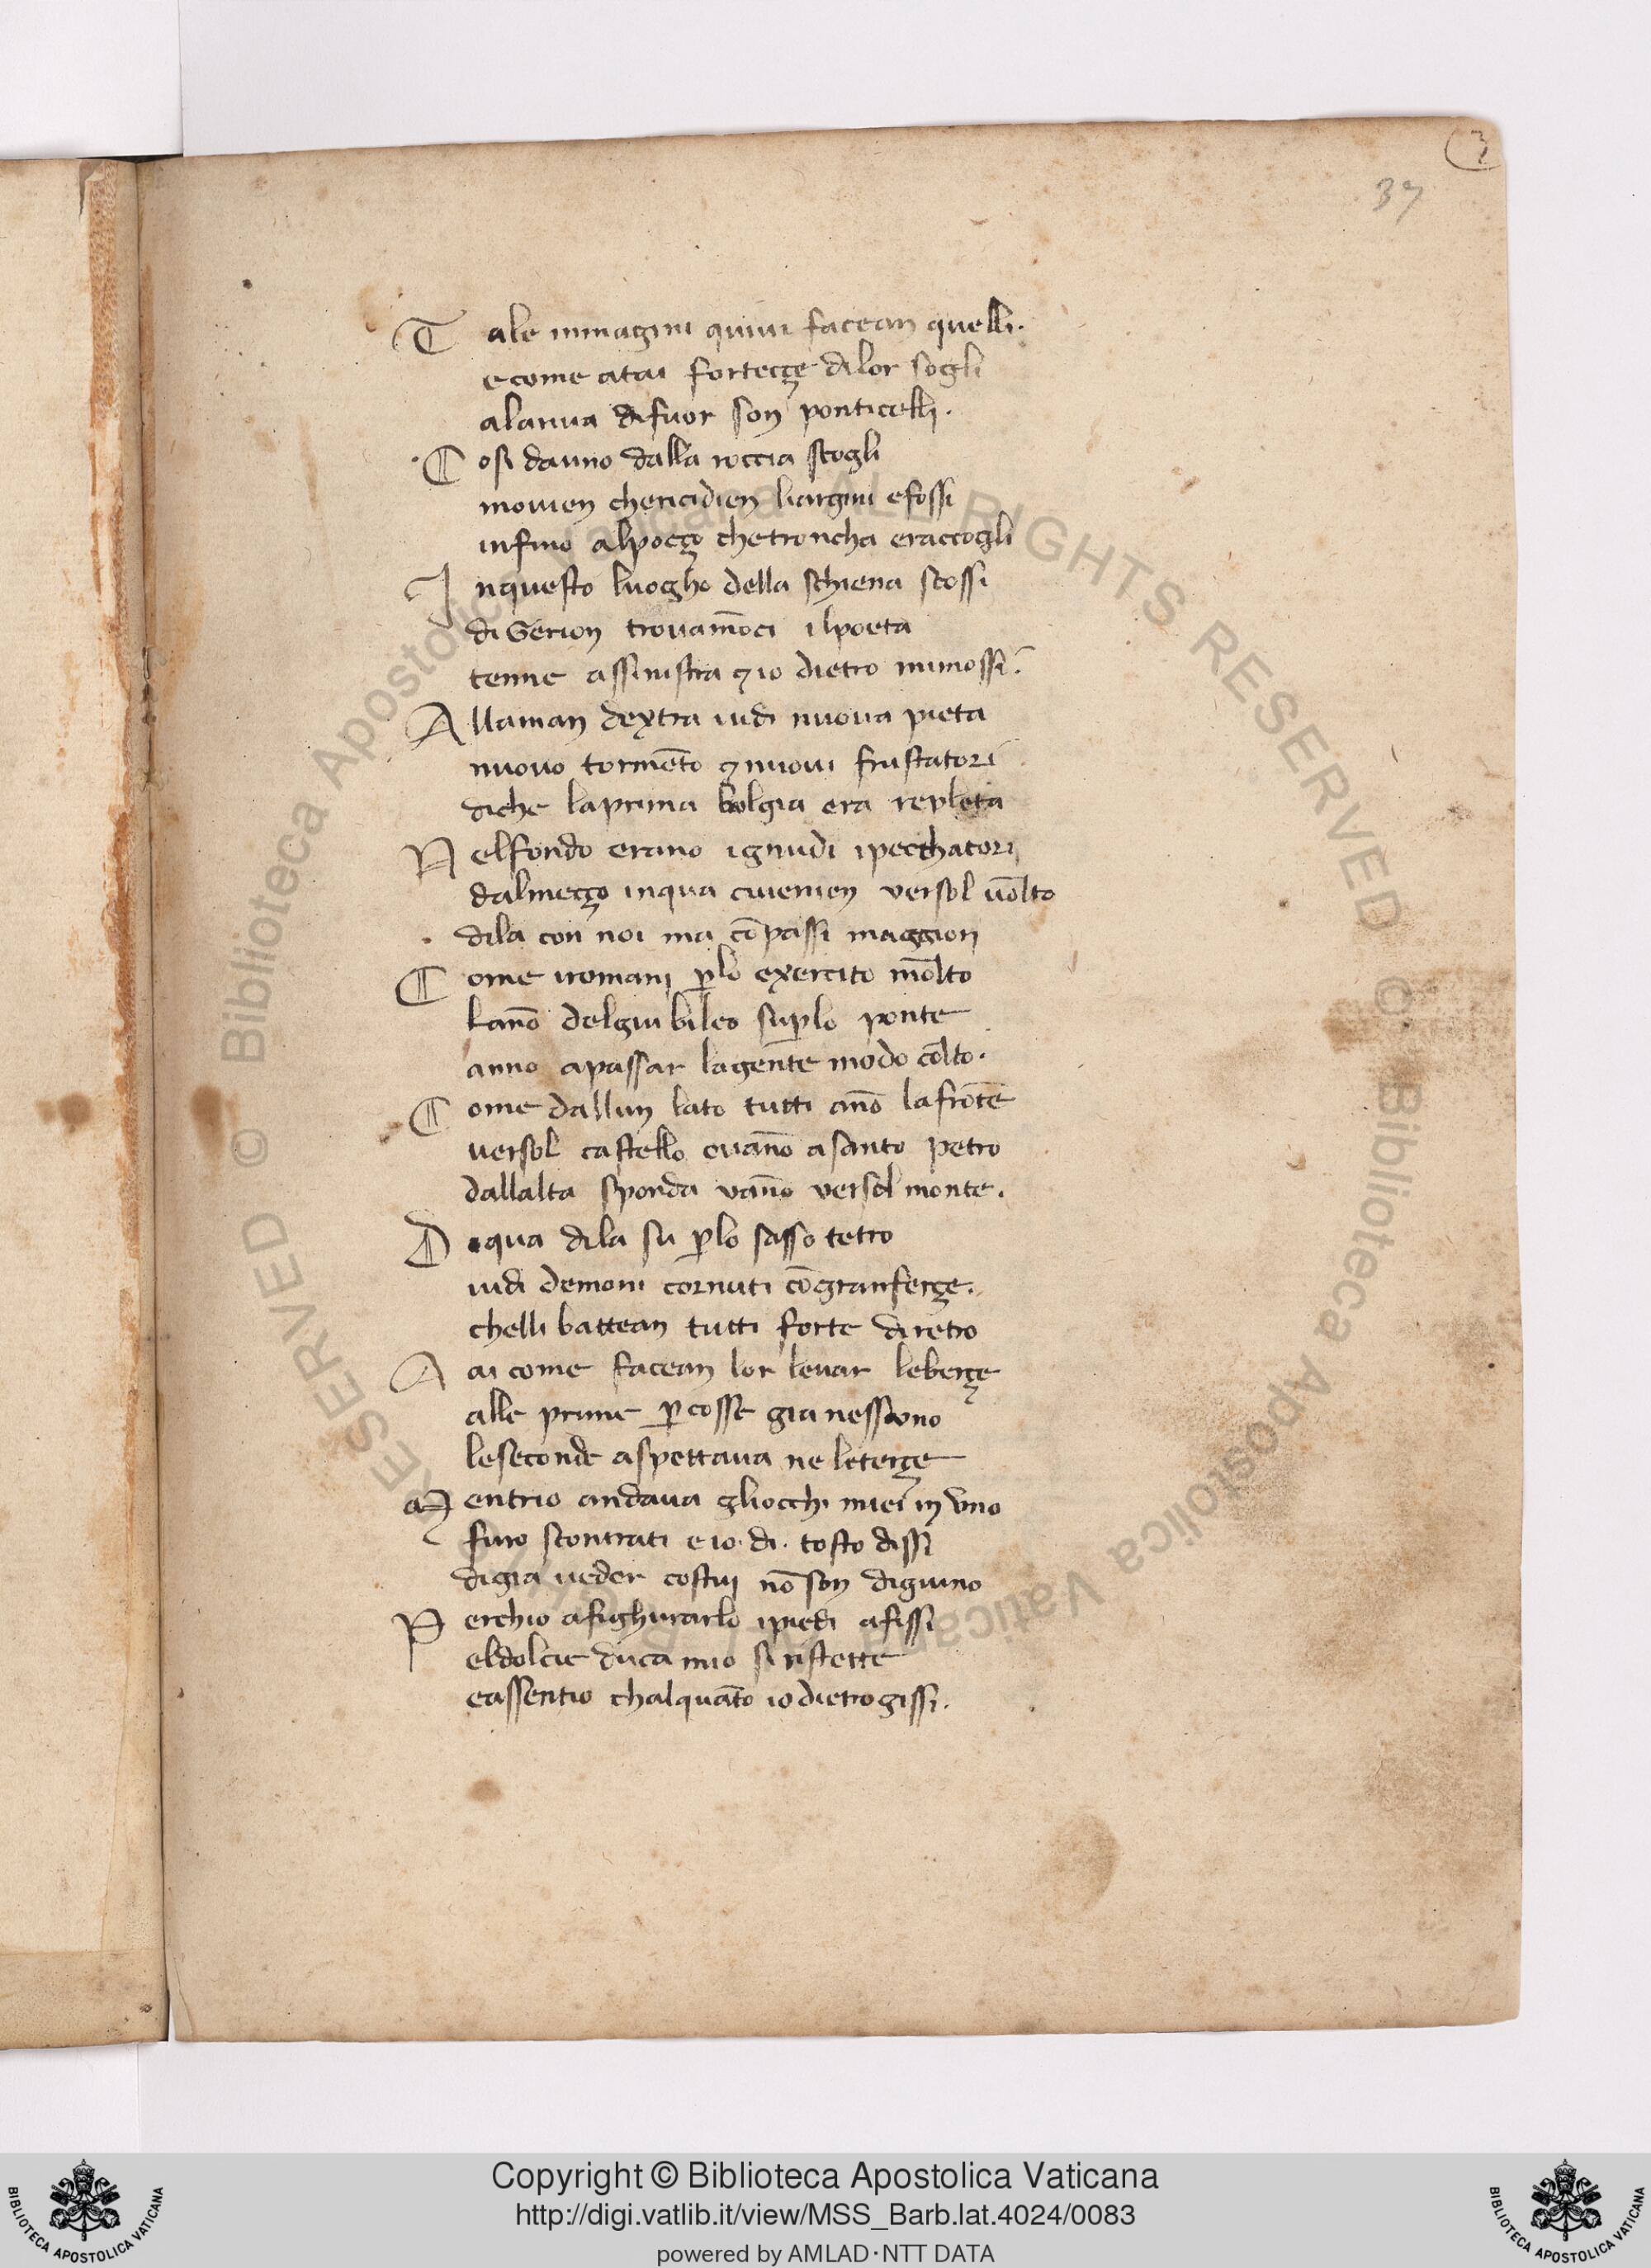 37
T ale immagini quiui facean quelli.
e come atai fortecçe dilor sogli
alariua difuor son ponticelli.
C osi dauno dalla roccia scogli
mouien chericidien liargini efossi
infino alpocço chetroncha eraccogli
I nquesto luogho della schiena scossi
di Gerion trouam̄oci ilpoeta
tenne assinistra ⁊ io dietro mimossi.
A llaman dextra uidi nuoua pieta
nuouo torm̄eto ⁊ nuoui frustatori
diche laprima bolgia era repleta
N elfondo erano ignudi ipecchatori
dalmecço inqua ciuenien uersol uōlto
dila con noi ma cōpassi maggiori
C ome iromani ꝑlo exercito mōlto
lanō delgiubileo suꝑlo ponte
anno apassar lagēnte modo cōlto.
C ome dallun lato tutti anō lafrōte
uersol castello euanō asanto petro
dallalta sponda uanō uersol monte.
D iqua dila su ꝑlo sasso tetro
uidi demoni cornuti cōgranferçe.
chelli battean tutti forte diretro
A ai come facean lor leuar leberçe
alle prime ꝑcosse gia nessuno
leseconde aspettaua ne leterçe
M entrio andaua gliocchi miei in uno
furo scontrati e io. di. tosto dissi
digia ueder costui nō son digiuno
P erchio afighurarlo ipiedi afissi
eldolcie duca mio si ristette
eassentio chalquāto io dietro gissi.
Copyright © Biblioteca Apostolica Vaticana
http://digi.vatlib.it/view/MSS_Barb.lat.4024/0083
powered by AMLAD·NTT DATA
BIBLIOTECA APOSTOLICA VATICANA
BIBLIOTECA APOSTOLICA VATICANA